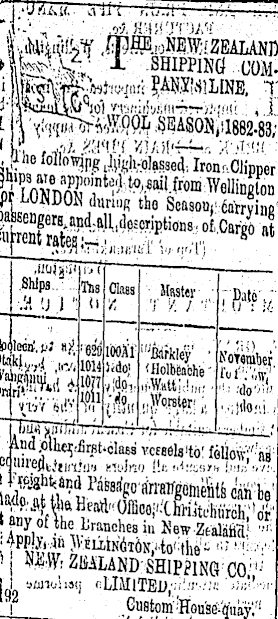 THE NEW ZEALAND
SHIPPING COM-
PANY'S LINE,
WOOL SEASON, 1882-83.
The following high-classed Iron Clipper
Ships are appointed to sail from Wellington
for LONDON during the Season, carrying
passengers and all descriptions of Cargo at
current rates:—
Ships Tns Class Master Date
629 100A1 Barkley November
Otaki 1014 do Holbeache To follow,
Wanganui 1077 do Watt do
1011 do Worster do
And other first-class vessels to follow, as
required.
Freight and Passage arrangements can be
made at the Head Office, Christchurch, or
at any of the Branches in New Zealand.
Apply, in WELLINGTON, to the
NEW ZEALAND SHIPPING CO.,
LIMITED,
Custom House-quay.
92